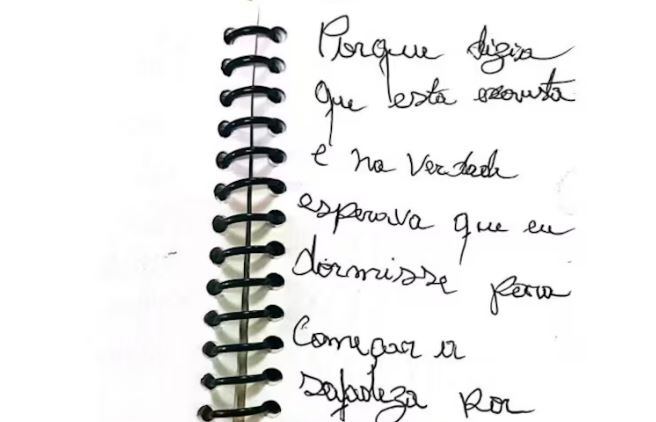 Porque dizia
que está exausta
e na verdade
esperava que eu
dormisse para
começar a
safadeza por